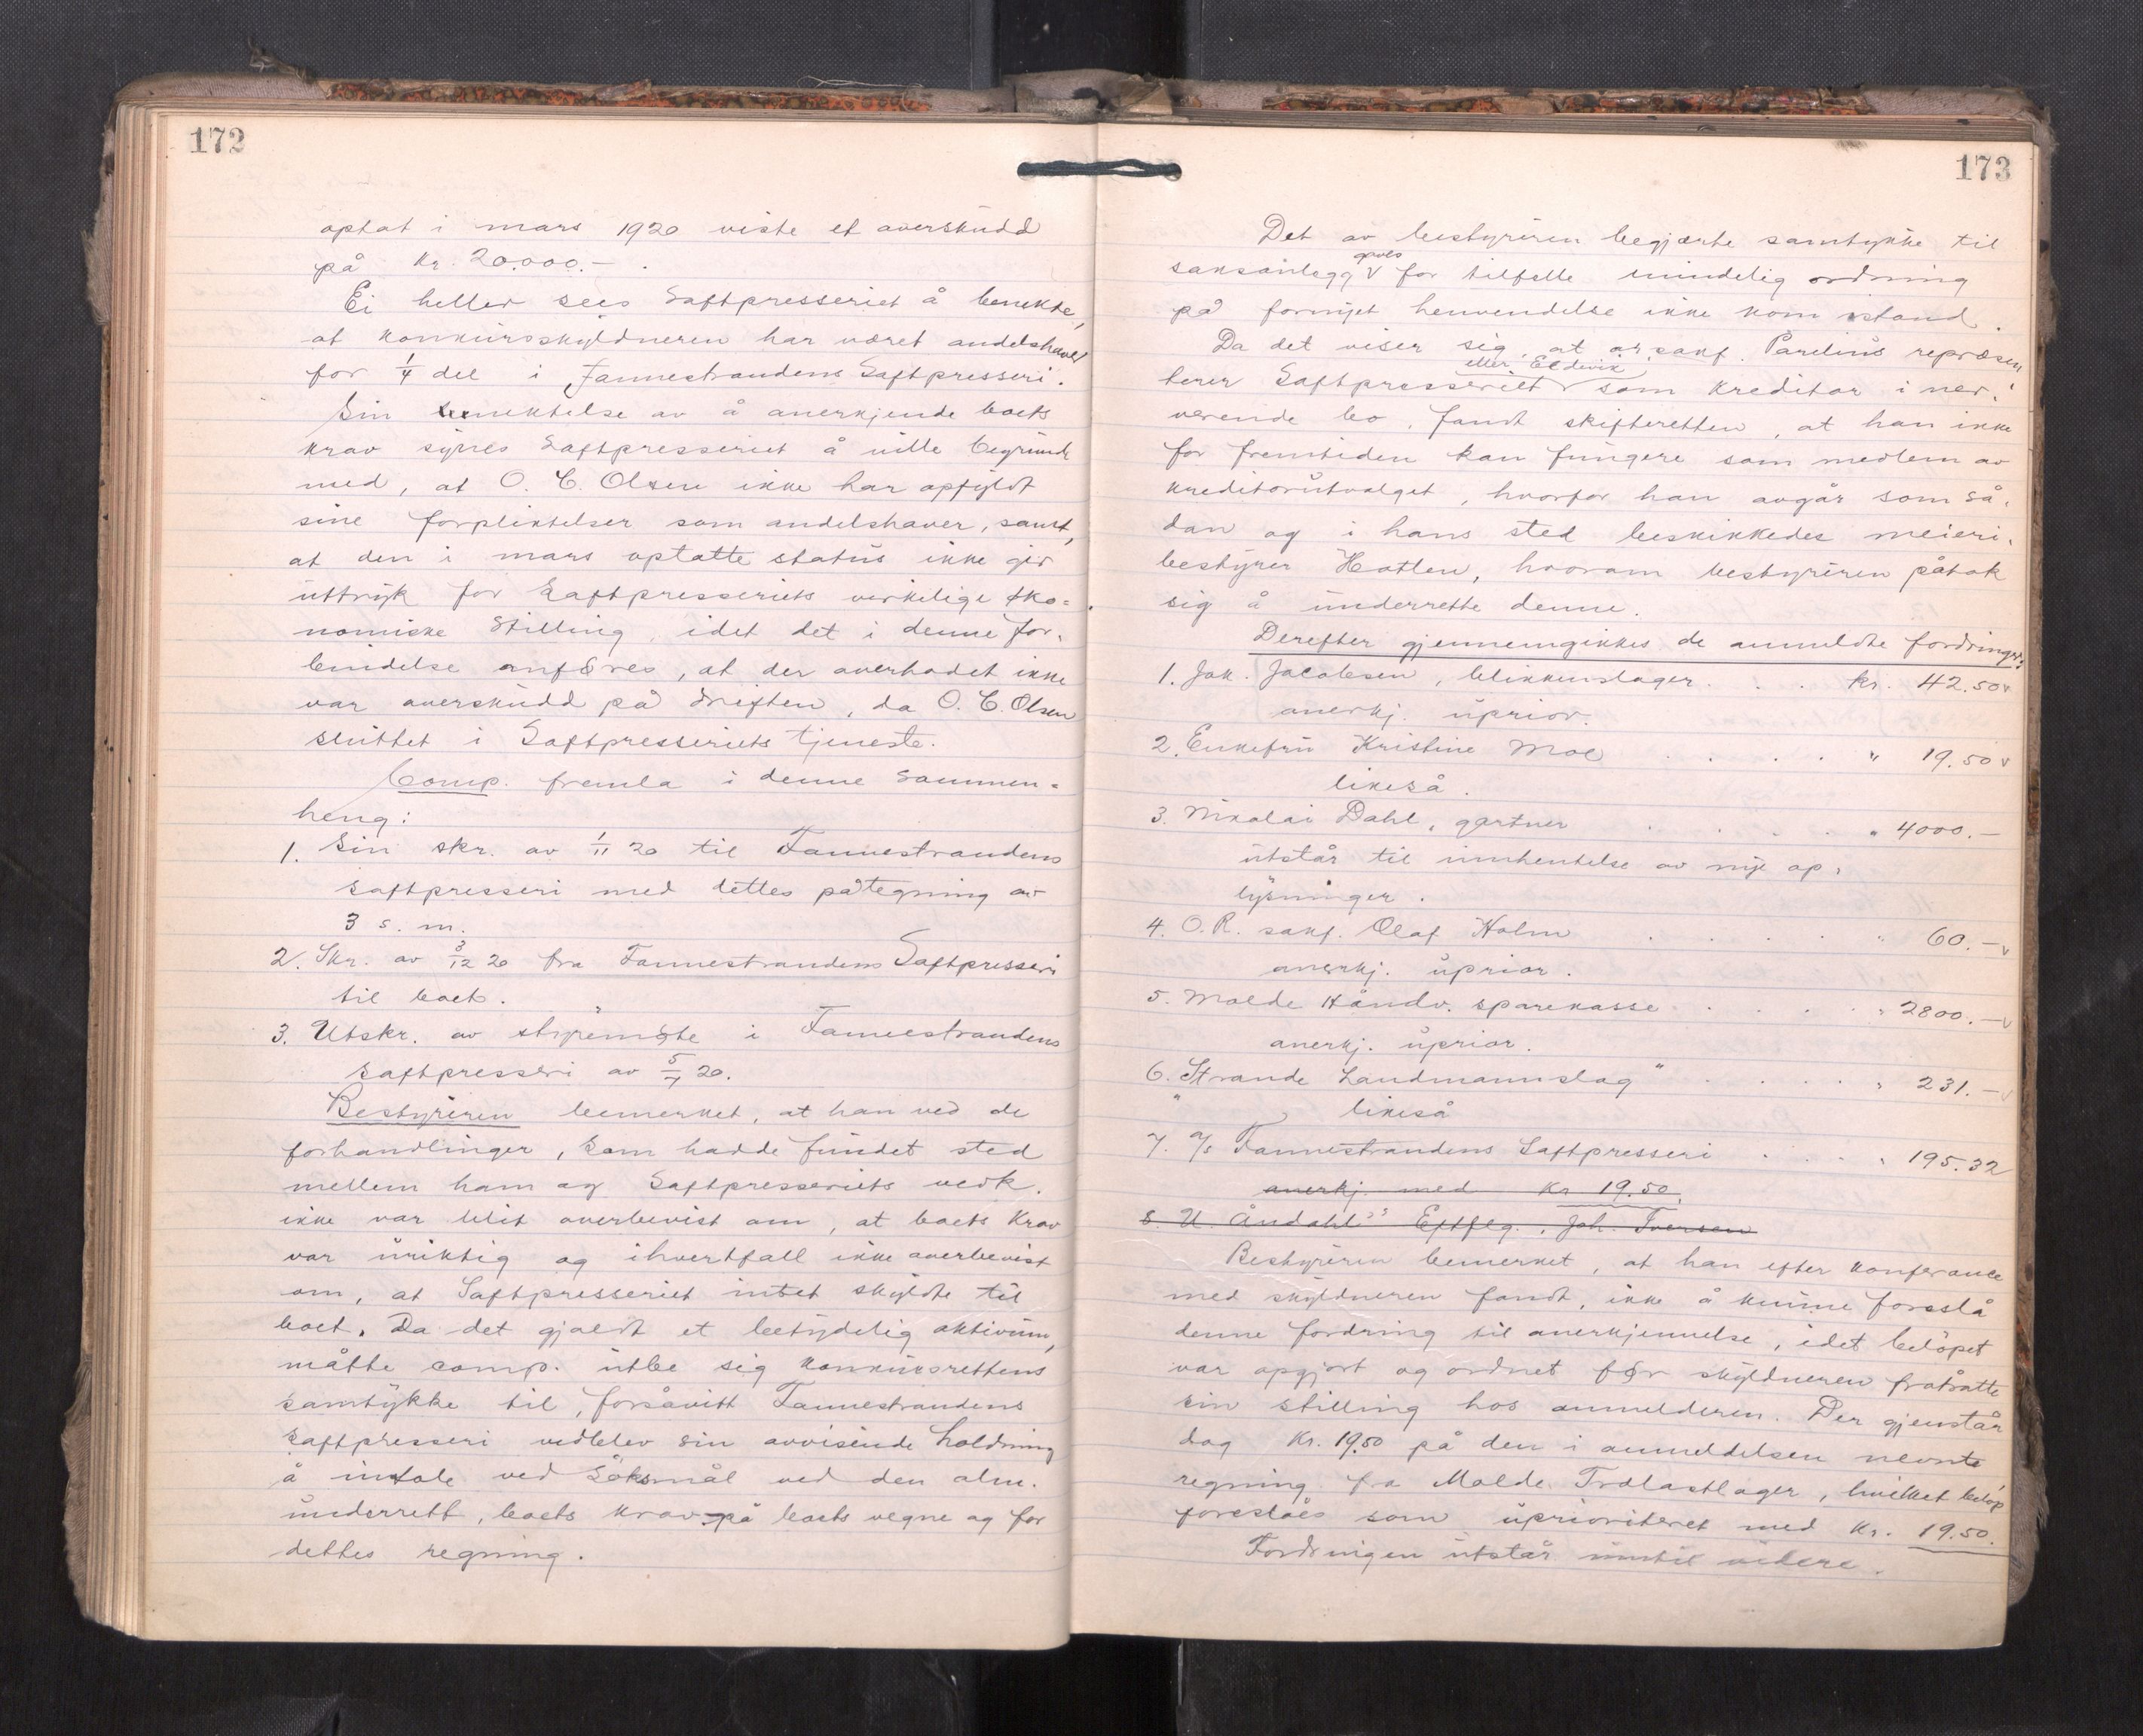 172
optat i mars 1920 viste et averskudd
på kr. 20.000.- .
Ei heller sees Saftpresseriet å benekte,
at konkursskyldneren har været andelshaver
for 1/4 del i Fannestrandens Saftpresseri.
Sin benektelse av å anerkjende boets
krav synes Saftpresseriet å ville begrunde
med, at O. C. Olsen ikke har opfyldt
sine forpliktelser som andelshaver, samt,
at den i mars optatte status ikke gir
uttryk for Saftpresseriets virkelige øko=
nomiske stilling, idet det i denne for-
bindelse anføres, at der averhodet ikke
var averskudd på driften, da O. C. Olsen
sluttet i Saftpresseriets tjeneste.
Comp. fremla i denne sammen-
heng:
1. Sin skr. av 1/11 20 til Fannestrandens
saftpresseri med dettes påtegning av
3 s. m.
2. Skr. av 3/12 20 fra Fannestrandens Saftpresseri
til boet.
3. Utskr. av styremøte i Fannestrandens
saftpresseri av 5/7 20.
Bestyreren bemerket, at han ved de
forhandlinger, som hadde fundet sted
mellem ham og Saftpresseriets vedk.
ikke var blit averbevist om, at boets krav
var uriktig og ihvertfall ikke averbevist
om, at Saftpresseriet intet skyldte til
boet. Da det gjaldt et betydelig aktivum,
måtte comp. utbe sig konkursrettens
samtykke til, forsåvitt Fannestrandens
saftpresseri vedblev sin avvisende holdning
å intale ved søksmål ved den alm.
underrett, boets krav på boets vegne og for
dettes regning.
173
Det av bestyreren begjærte samtykke til
saksanlegg gaves for tilfelle mindelig ordning
på fornyet henvendelse ikke kom istand.
Da det viser sig, at or.sakf. Parelius repræsen
terer Saftpresseriet eller Eldevik som kreditor i nær-
værende bo, fandt skifteretten, at han ikke
for fremtiden kan fungere som medlem av
kreditorutvalget, hvorfor han avgår som så-
dan og i hans sted beskikkedes meieri-
bestyrer Hatlen, hvorom bestyreren påtok
sig å underrette denne.
Derefter gjennemgikkes de anmeldte fordringer:
1. Jak. Jacobsen, blikkenslager . . . kr. 42.50 v
anerkj. uprior.
2. Enkefru Kristine Moe . . . . " 19.50 v
likeså.
3. Nikolai Dahl, gartner . . . . " 4000.-
utstår til innhentelse av nye op-
lysninger.
4. O.R. sakf. Olaf Holm . . . . . " 60.- v
anerkj. uprior.
5. Molde Håndv. sparekasse . . . . " 2800.- v
anerkj. uprior.
6. Strande Landmannslag . . . . " 231.- v
likeså
7. A/s Fannestrandens Saftpresseri . . . . " 195.32
anerkj. med kr 19.50.
8 U. Åndahls Eftflg., Joh. Iversen
Bestyreren bemerket, at han efter konferance
med skyldneren fandt, ikke å kunne foreslå
denne fordring til anerkjennelse, idet beløpet
var opgjort og ordnet før skyldneren fratrådte
sin stilling hos anmelderen. Der gjenstår
dog kr. 19.50 på den i anmeldelsen nevnte
regning fra Molde Trælastlager, hvilket beløp
foreslåes som uprioriteret med kr. 19.50.
Fordringen utstår inntil videre.